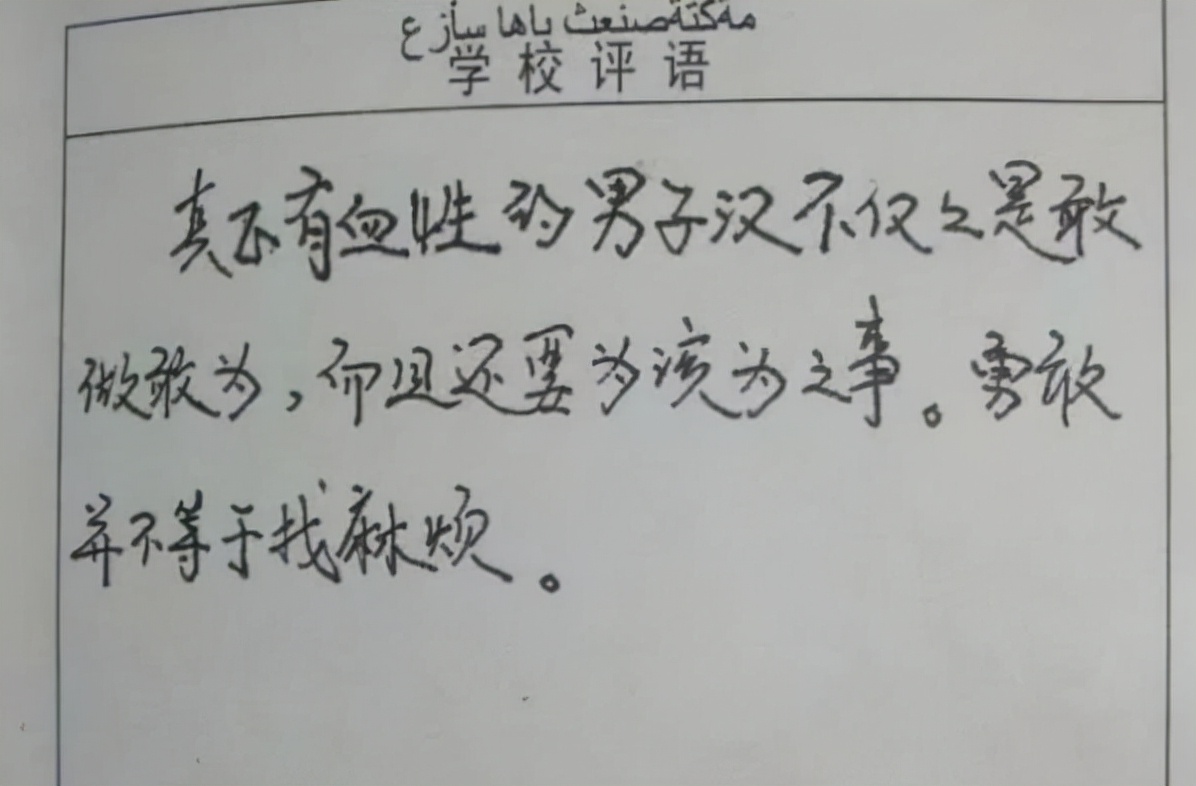 مەكتەصنعث ىاها سازع
学校评语
真正有血性的男子汉不仅仅是敢
做敢为，而且还要为该为之事。勇敢
并不等于找麻烦。